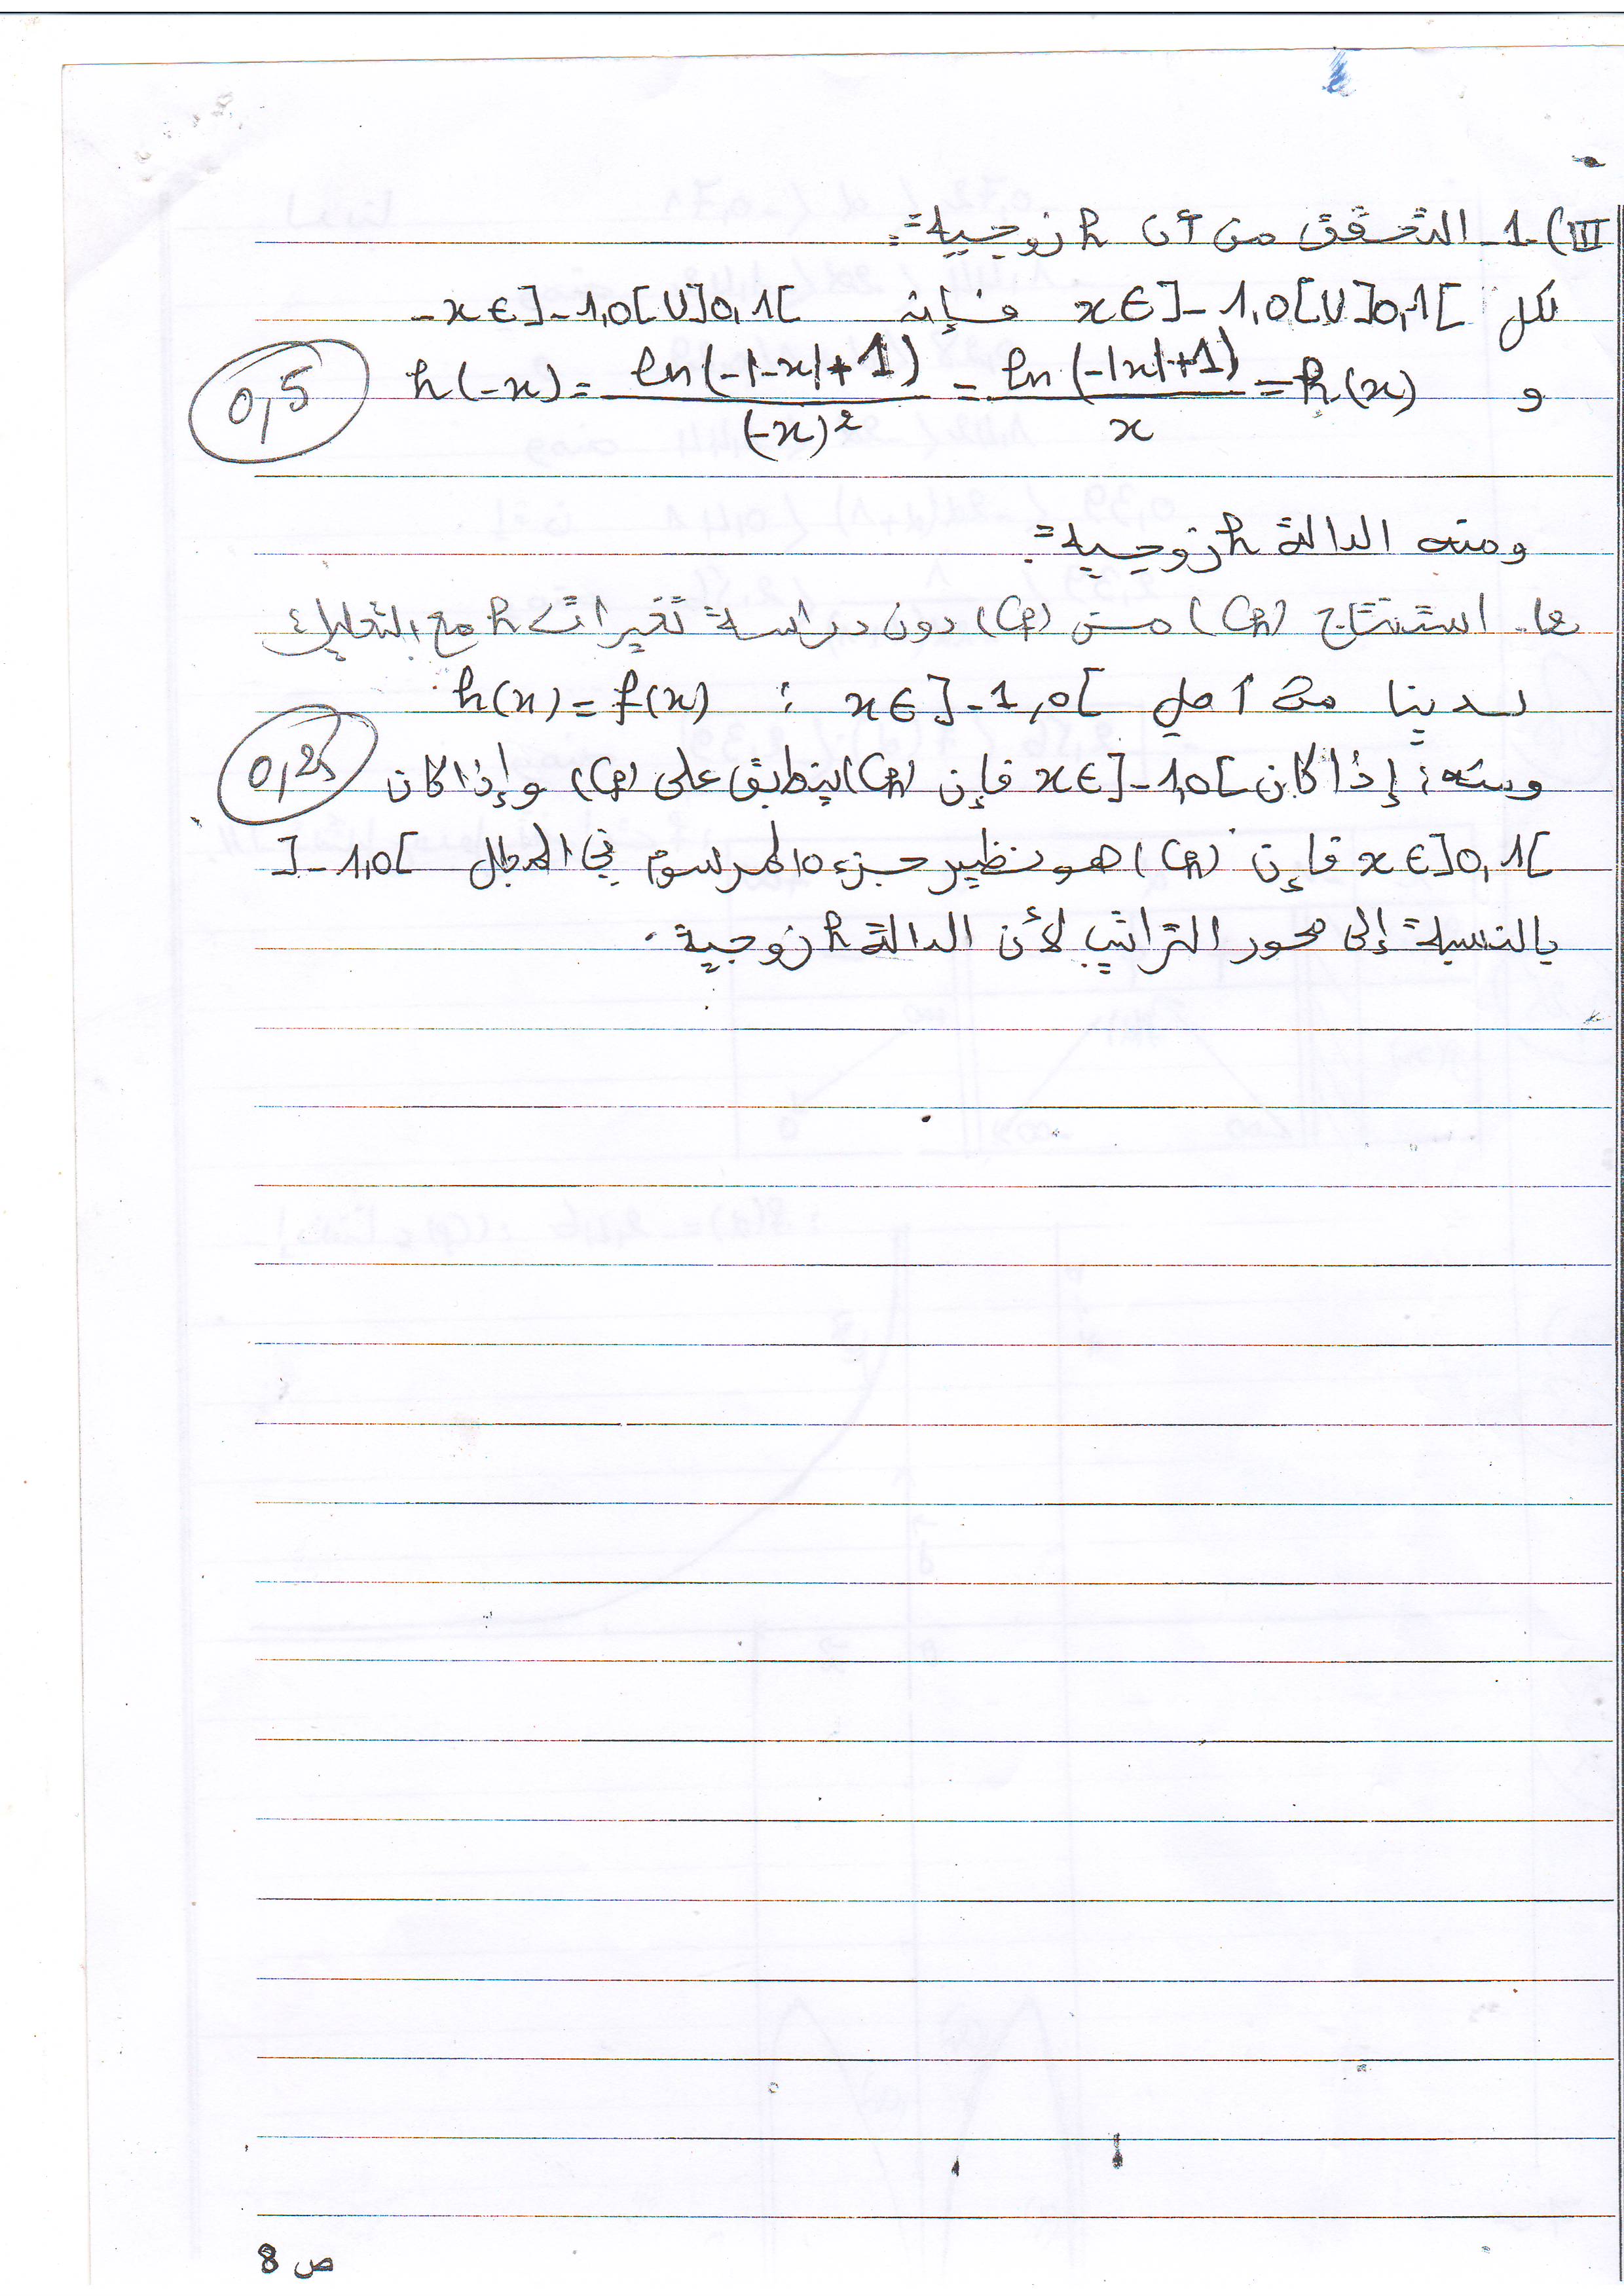 III) 1- التحقق من أن h زوجية:
لكل x∈]-1,0[∪]0,1[ فإنه -x∈]-1,0[∪]0,1[
و h(-x) = ln(-|-x|+1)/(-x)² = ln(-|x|+1)/x = h(x)
0,5
ومنه الدالة h زوجية:
استنتاج (Ch) من (Cf) دون دراسة تغيرات h مع التعليل:
لدينا من أجل x∈]-1,0[ : h(x) = f(x)
ومنه: إذا كان x∈]-1,0[ فإن (Ch) ينطبق على (Cf) وإذا كان
0,25
x∈]0,1[ فإن (Ch) هو نظير جزءه المرسوم في المجال ]-1,0[
بالنسبة إلى محور التراتيب لأن الدالة h زوجية.
ص 8